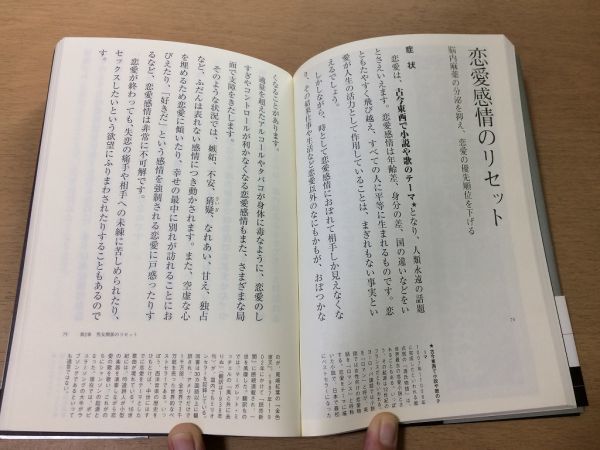 恋愛感情のリセット
脳内麻薬の分泌を抑え、恋愛の優先順位を下げる
症 状
恋愛は、古今東西で小説や歌のテーマ★となり、人類永遠の話題
とさえいえます。恋愛感情は年齢差、身分の差、国の違いなどをい
ともたやすく飛び越え、すべての人に平等に生まれるものです。恋
愛が人生の活力として作用していることは、まぎれもない事実とい
えるでしょう。
しかしながら、時として恋愛感情におぼれて相手しか見えなくな
り、その結果仕事や生活など恋愛以外のなにもかもが、おぼつかな
74
くなることがあります。
適量を超えたアルコールやタバコが身体に毒なように、恋愛のし
すぎやコントロールが利かなくなる恋愛感情もまた、さまざまな局
面で支障をきたします。
そのような状況では、嫉妬、不安、猜疑、なれあい、甘え、独占
など、ふだんは表れない感情につき動かされます。また、空虚な心
を埋めるため恋愛に傾いたり、幸せの最中に別れが訪れることにお
びえたり、「好きだ」という感情を強制される恋愛に戸惑ったりす
るなど、恋愛感情は非常に不可解です。
恋愛が終わっても、失恋の痛手や相手への未練に苦しめられたり、
セックスしたいという欲望にふりまわされたりすることもあるので
す。
75 第2章 男女関係のリセット